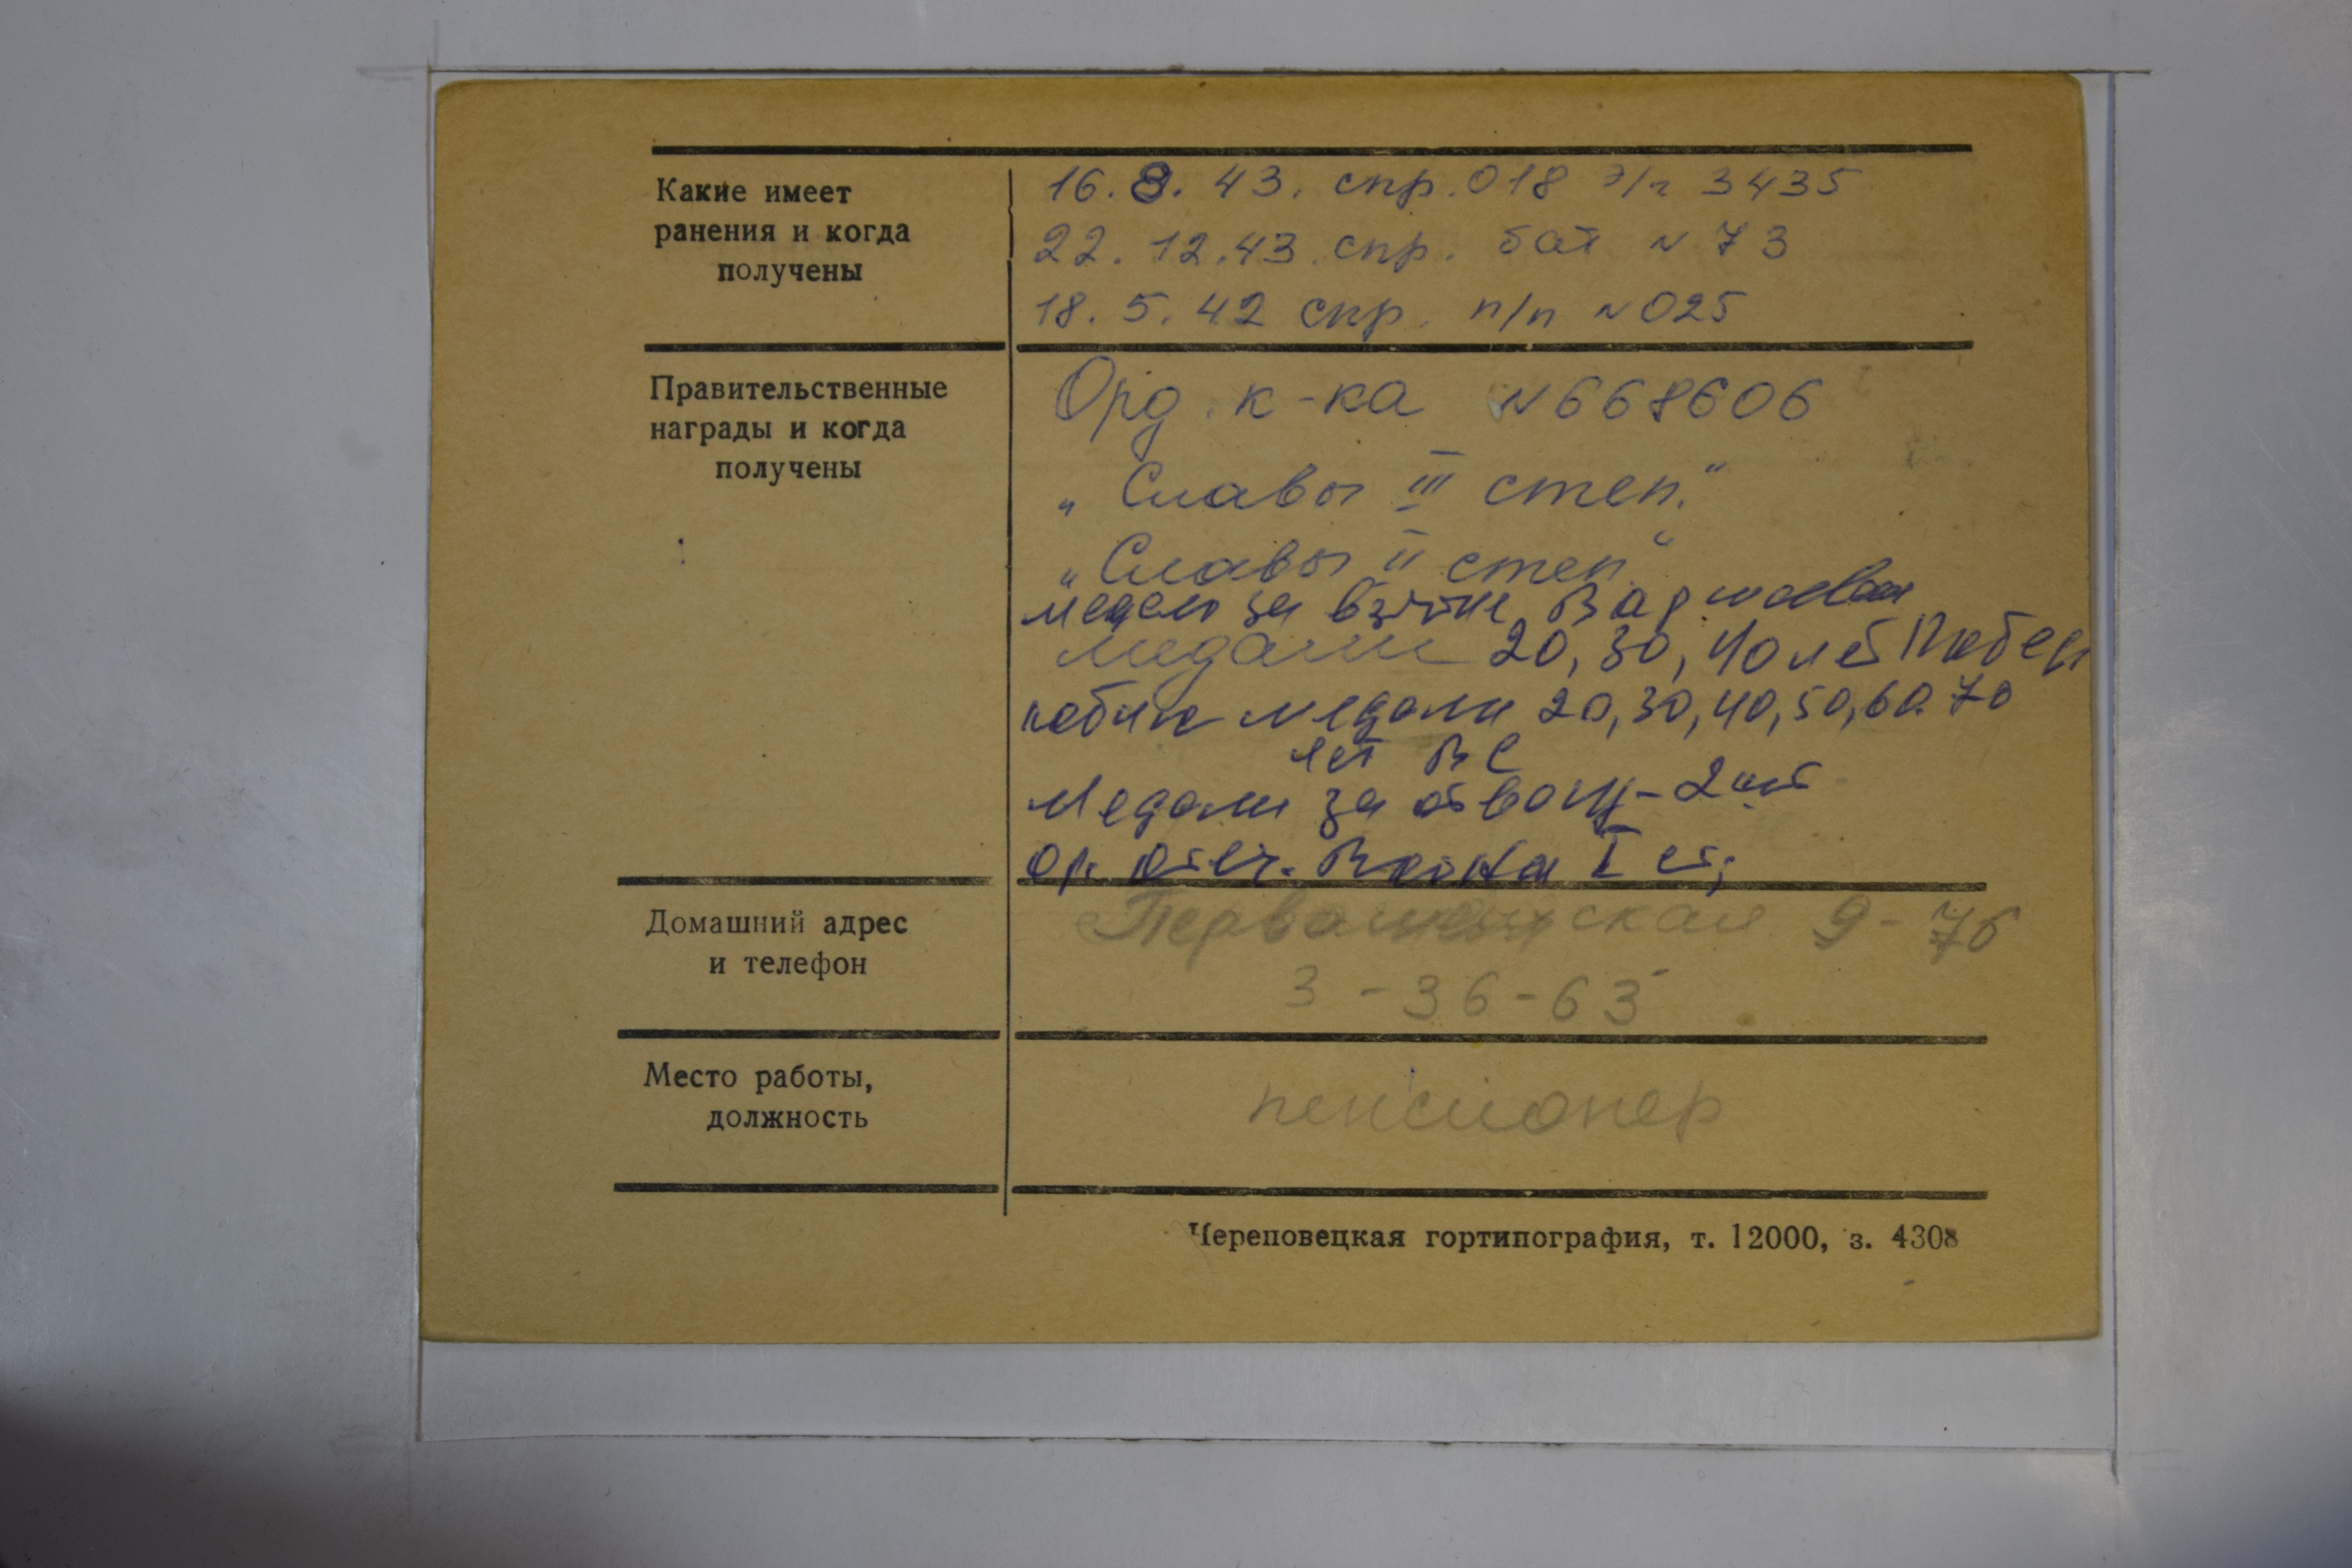 Какие имеет
ранения и когда
получены
16. 8. 43. спр. 018 э/г 3435
22. 12. 43. спр. бат N 73
18. 5. 42 спр. п/п N 025
Правительственные
награды и когда
получены
Орд. к-ка N 668606
„Славы III степ."
„Славы II степ"
медаль за взятие Варшавы
медали 20, 30, 40 лет Побед
юбил медали 20, 30, 40, 50, 60. 70
лет ВС
Медали за отвагу - 2 шт
Ор. Отеч. Война I ст;
Домашний адрес
и телефон
9 - 76
3 - 36 - 63
Место работы,
должность
пенсионер
Череповецкая гортипография, т. 12000, з. 4308